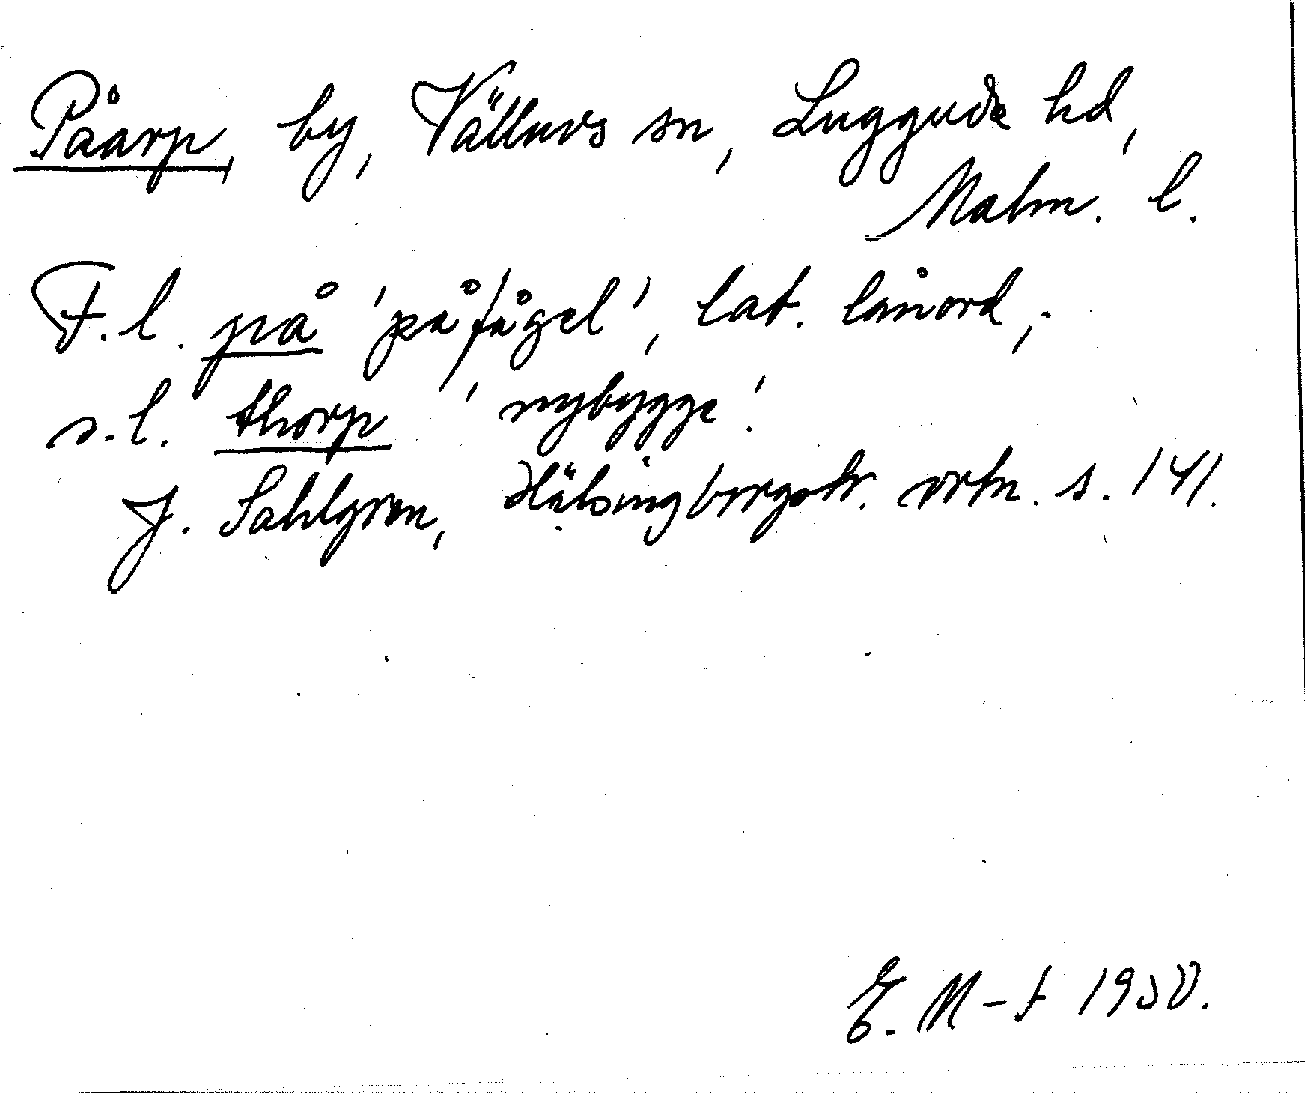 Påarp, by, Välluvs sn, Luggude hd,
Malm. l.
F.l. på 'påfågel', lat. lånord;
s.l. thorp 'nybygge'.
J. Sahlgren, Hälsingborgstr. ortn. s. 141.
E. M-t 1950.